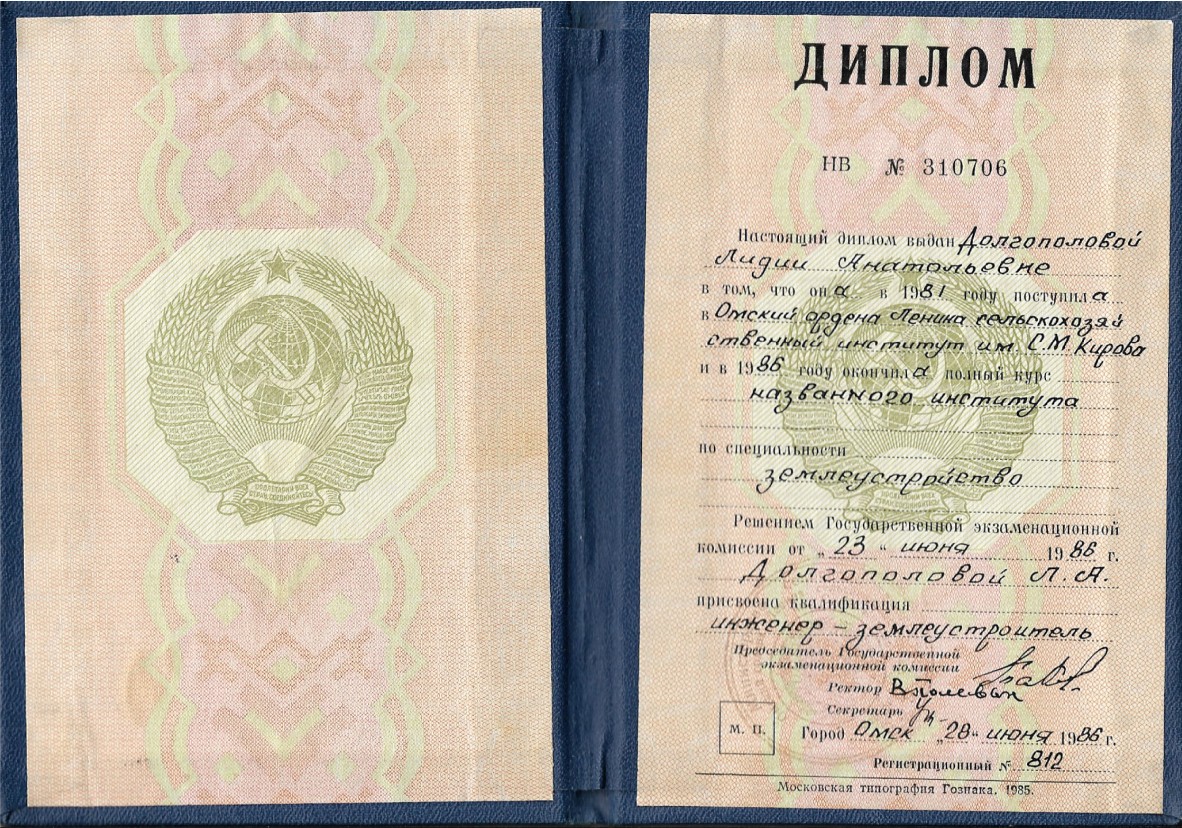 ПРОЛЕТАРИИ ВСЕХ
СТРАН, СОЕДИНЯЙТЕСЬ!
ДИПЛОМ
НВ № 310706
Настоящий диплом выдан Долгополовой
Лидии Анатольевне
в том, что он а в 1981 году поступил а
в Омский ордена Ленина сельскохозяй
ственный институт им. С.М. Кирова
и в 1986 году окончил а полный курс
названного института
по специальности
землеустройство
Решением Государственной экзаменационной
комиссии от „ 23 “ июня 1986 г.
Долгополовой Л. А.
присвоена квалификация
инженер – землеустроитель
Председатель Государственной
экзаменационной комиссии
Ректор
Секретарь
М. П.
Город Омск „28“ июня 1986 г.
Регистрационный № 812
Московская типография Гознака. 1985.